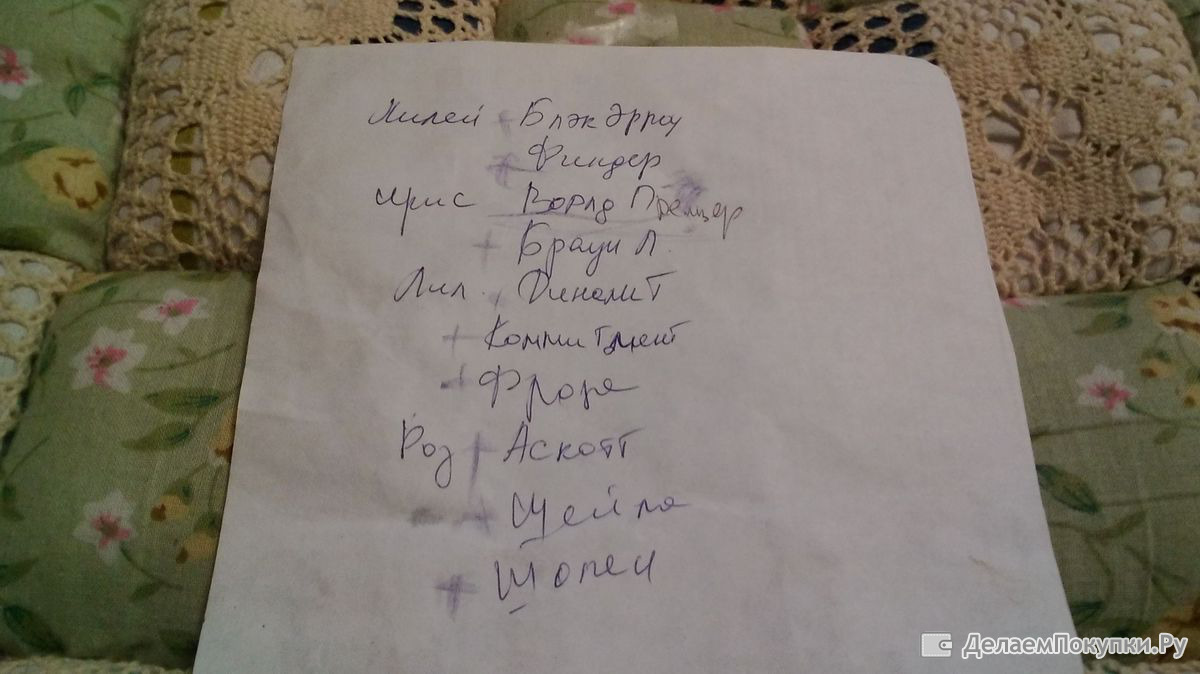 Лилей + Блэк Эрроу
+ Финдер
Ирис Ворлд Премьер
+ Браун Л.
Лил. Динамит
+ Коммитмент
+ Флора
Роз + Аскотт
+ Шейла
+ Шопен
ДелаемПокупки.Ру